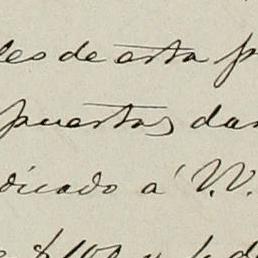 les de esta p
puestos dar
dicado á V.V.